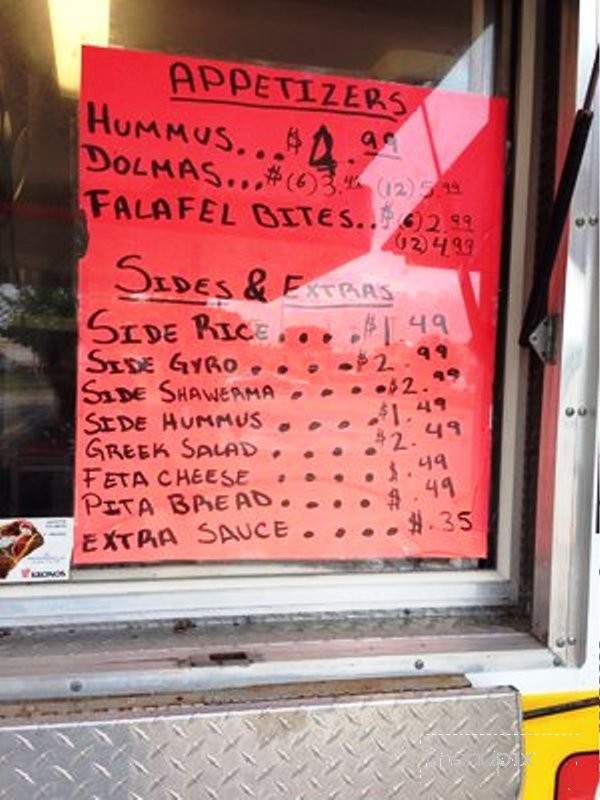 APPETIZERS
HUMMUS... $4.99
DOLMAS...$(6)3.49 (12)5.99
FALAFEL BITES..$(6)2.99
(12)4.99
SIDES & EXTRAS
SIDE RICE....$1.49
SIDE GYRO....$2.99
SIDE SHAWERMA....$2.99
SIDE HUMMUS....$1.49
GREEK SALAD....$2.49
FETA CHEESE....$.49
PITA BREAD....$.49
EXTRA SAUCE....$.35
KRONOS